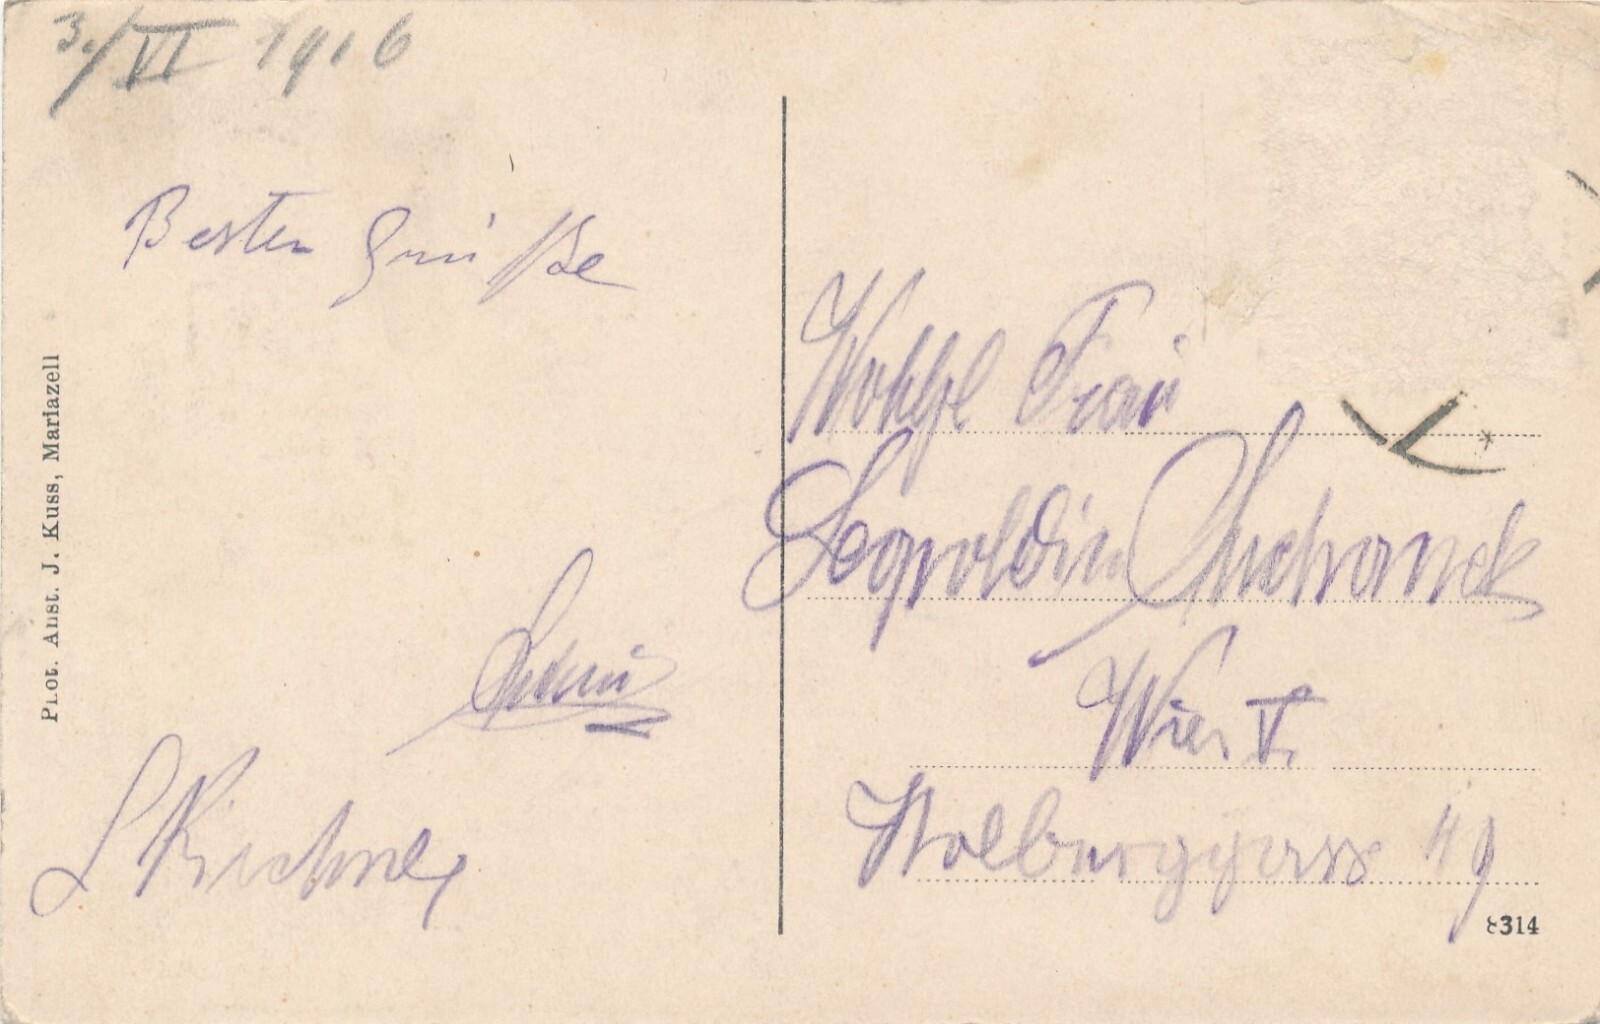 3./VI 1916
Besten Grüße
L Kirchner
Phot. Anst. J. Kuss, Mariazell
Wohlg. Frau
Leopoldin Suchanek
Wien V.
49
8314